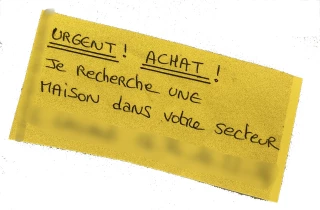 URGENT! ACHAT!
Je Recherche UNE
MAISON dans votre secteur